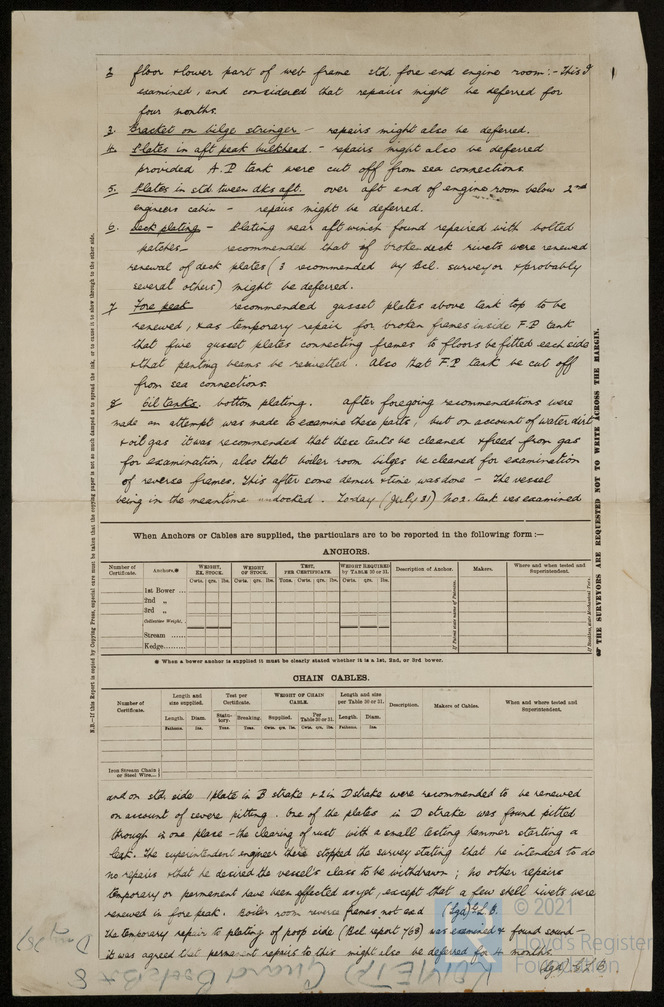 2 floor & lower part of web frame std. fore end engine room:- This I
examined, and considered that repairs might be deferred for
four months.
3. Bracket on bilge stringer - repairs might also be deferred.
4. Plates in aft peak bulkhead. - repairs might also be deferred
provided A.P tank were cut off from sea connections
5. Plates in std. tween dks aft. over aft end of engine room below 2nd
engineers cabin - repairs might be deferred.
6. Deck plating - Plating near aft winch found repaired with bolted
patches - recommended that if broken deck rivets were renewed
renewal of deck plates (3 recommended by Bcl. surveyor & probably
several others) might be deferred.
7 Fore peak recommended gusset plates above tank top to be
renewed, & as temporary repair for broken frames inside F.P tank
that five gusset plates connecting frames to floors be fitted each side
& that panting beams be rerivetted. Also that F.P tank be cut off
from sea connections.
8 Oil tanks. bottom plating. After foregoing recommendations were
made an attempt was made to examine these parts; but on account of water dirt
& oil gas it was recommended that these tanks be cleaned & freed from gas
for examination, also that boiler room bilges be cleaned for examination
of reverse frames. This after some demur & time was done - The vessel
being in the meantime undocked. Today (July 31) No 2. tank was examined
When Anchors or Cables are supplied, the particulars are to be reported in the following form:—
ANCHORS.
Number of Certificate. Anchors.* WEIGHT, EX. STOCK. WEIGHT OF STOCK. TEST, PER CERTIFICATE. WEIGHT REQUIRED by TABLE 30 or 31. Description of Anchor. Makers. Where and when tested and Superintendent.
Cwts. qrs. lbs. Cwts. qrs. lbs. Tons. Cwts. qrs. lbs. Cwts. qrs. lbs.
1st Bower ...
2nd „
3rd „
Collective Weight.
Stream ......
Kedge.........
* When a bower anchor is supplied it must be clearly stated whether it is a 1st, 2nd, or 3rd bower.
CHAIN CABLES.
Number of Certificate. Length and size supplied. Test per Certificate. WEIGHT OF CHAIN CABLE. Length and size per Table 30 or 31. Description. Makers of Cables. When and where tested and Superintendent.
Length. Diam. Statutory. Breaking. Supplied. Per Table 30 or 31. Length. Diam.
Fathoms. Ins. Tons. Tons. Cwts. qrs. lbs Cwts. qrs. lbs Fathoms. Ins.
Iron Stream Chain or Steel Wire...
and on std. side 1 plate in B strake & 2 in D strake were recommended to be renewed
on account of severe pitting. One of the plates in D strake was found pitted
through in one place - the clearing of rust with a small testing hammer starting a
leak. The superintendent engineer there stopped the survey stating that he intended to do
no repairs & that he desired the vessel's class to be withdrawn; no other repairs
temporary or permanent have been effected as yet, except that a few shell rivets were
renewed in fore peak. Boiler room reverse frames not exd (Sgd) G.L.B.
The temporary repair to plating of poop side (Bcl report 768) was examined & found sound -
it was agreed that permanent repairs to this might also be deferred for 4 months.
(Sgd) G.L.B.
N.B.—If this Report is copied by Copying Press, especial care must be taken that the copying paper is not so much damped as to spread the ink, or to cause it to show through to the other side.
OF THE SURVEYORS ARE REQUESTED NOT TO WRITE ACROSS THE MARGIN.
© 2021
Lloyd's Register
Foundation